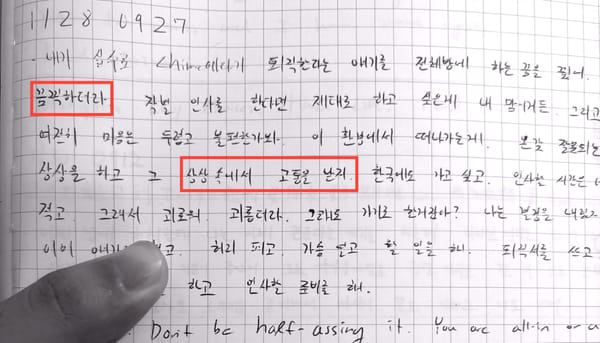 1128 0927
. 내가 실수로 Chime에다가 퇴직한다는 얘기를 전체방에 하는 꿈을 꿨어.
끔찍하더라. 작별 인사를 한다면 제대로 하고 싶은게 내 맘이거든. 그리고
여전히 마음은 두렵고 불편한가봐. 이 환경에서 떠나가는게. 온갖 잘못되는
상상을 하고 그 상상 속에서 고통을 받지. 한국에도 가고 싶고. 인사할 시간은
적고. 그래서 괴로워. 괴롭더라. 그래도 가기로 한거잖아? 나는 결정을 내렸
이미 하고. 허리 펴고. 가슴 펴고 할 일을 해. 퇴직서를 쓰고
하고 인사할 준비를 해.
Don't be half-assing it. You are all-in or